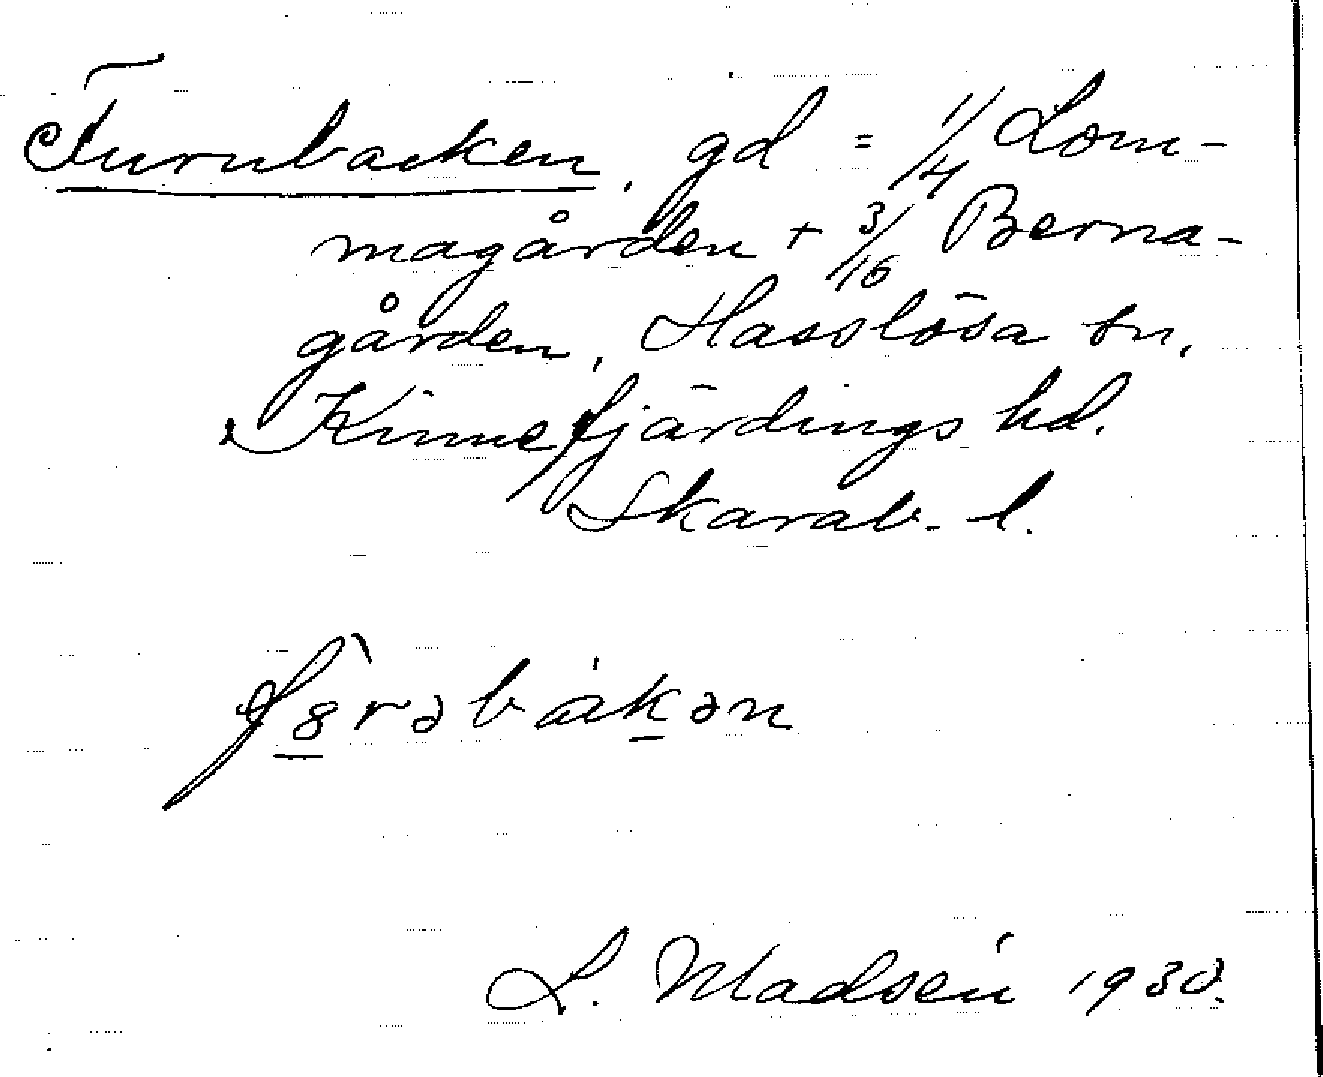 Furubacken, gd = 1/4 Lom-
magården + 3/16 Berna-
gården, Hasslösa sn,
Kinnefjärdings hd.
Skarab. l.
f8rəbakən
L. Madsén 1930.